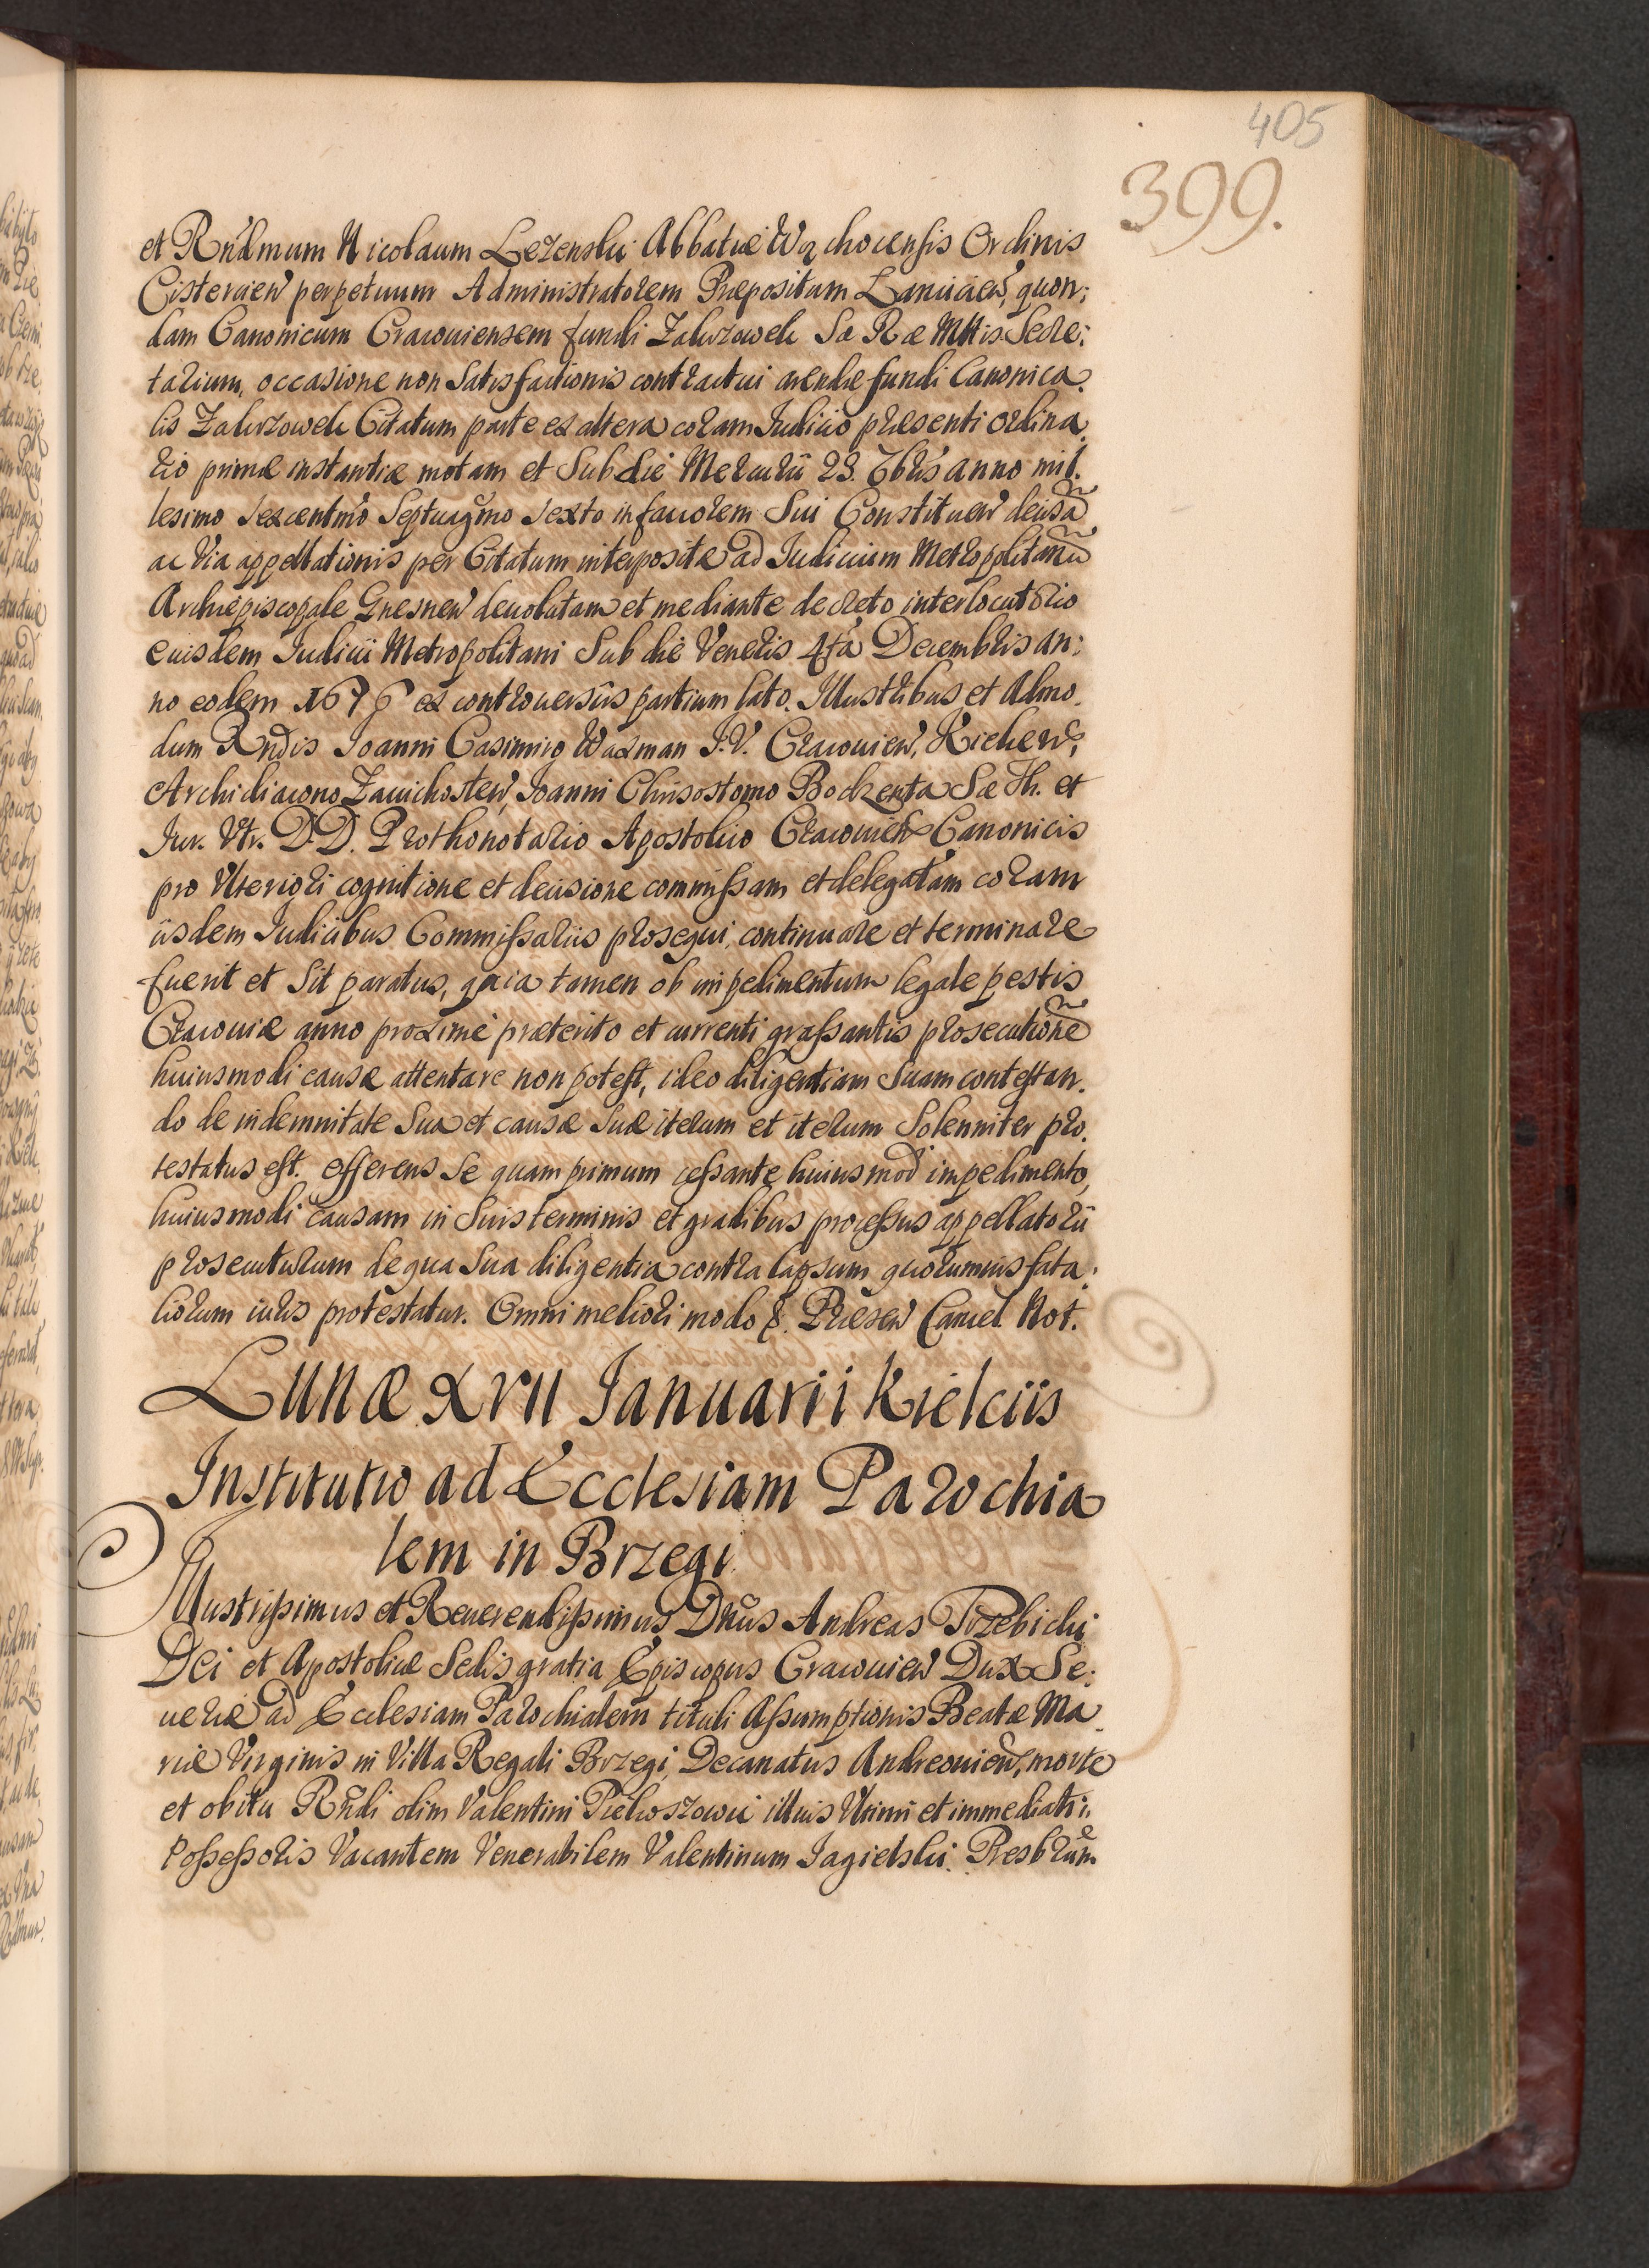 405
399.
et Rndmum Nicolaum Lezenski Abbatiæ Wąchocensis Ordinis
Cistercien perpetuum Administratorem Præpositum Lanicien, quon:
dam Canonicum Cracouiensem fundi Zakrzowek Sæ Ræ Mttis Secre:
tarium, occasione non Satisfactionis contractui arendæ fundi Canonica.
lis Zakrzowek Citatum parte ex altera coram Iudicio præsenti ordina.
rio primæ instantiæ motam et Sub die Mercurii 23. 7bris anno mil.
lesimo sexcentmo Septuagmo sexto in fauorem Sui Constituen decisã
ac Via appellationis per Citatum interpositæ ad Iudicium Metropolitanũ
Archiepiscopale Gnesnen deuolutam et mediante decreto interlocutorio
eiusdem Iudicii Metropolitani Sub die Veneris 4ta Decembris an:
no eodem 1676 ex controuersiis partium lato. Illustribus et Admo.
dum Rndis Ioanni Casimiro Waxman I.V. Cracouien, Kielcen,
Archidiacono Zawichosten, Ioanni Chrisostomo Bodzenta Sæ Th. et
Iur. Vtr. D.D. Prothonotario Apostolico Cracouien Canonicis
pro Vlteriori cognitione et decisione commissam et delegatam coram
iisdem Iudicibus Commissariis prosequi, continuare et terminare
fuerit et Sit paratus, quia tamen ob impedimentum legale pestis
Cracouiæ anno proxime præterito et currenti grassantis prosecutionẽ
huiusmodi causæ attentare non potest, ideo diligentiam Suam contestan.
do de indemnitate Sua et causæ Suæ iterum et iterum Solenniter pro.
testatus est. offerens Se quam primum cessante huiusmod impedimento,
huiusmodi causam in Suis terminis et gradibus processus appellatorii
prosecuturum de qua Sua diligentia contra lapsum quorumuis fata.
liorum iuris protestatur. Omni meliori modo &. Præsen Cancel. Not.
Lunæ XVII Ianuarii Kielciis
Institutio ad Ecclesiam Parochia
lem in Brzegi
Illustrissimus et Reuerendissimus Dnus Andreas Trzebicki
Dei et Apostolicæ Sedis gratia Episcopus Cracouien Dux Se:
ueriæ ad Ecclesiam Parochialem tituli Assumptionis Beatæ Ma.
riæ Virginis in Villa Regali Brzegi, Decanatus Andreouien, morte
et obitu Rndi olim Valentini illius Vltimi et immediati
Possessoris Vacantem Venerabilem Valentinum Jagielski Presbrum